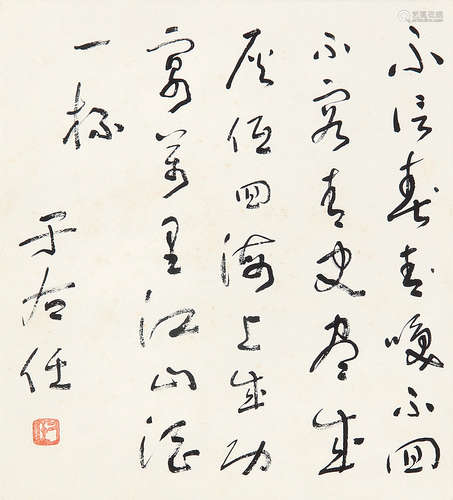 不信青春喚不回
不容青史尽成
灰低回海上成功
宴萬里江山酒
一杯
于右任